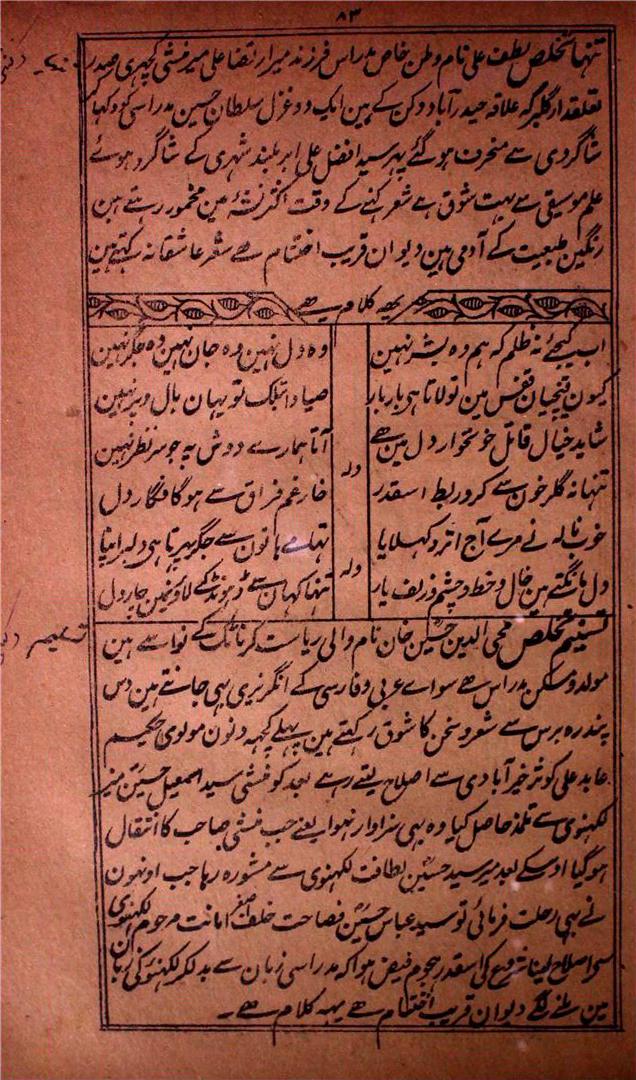 ۸۳
تنہا تخلص لطف علی نام وطن خاص مدراس فرزند میر ارتضا علی میر منشی کچہری صدر
تعلقدار گلبرگہ علاقہ حیدرآباد دکن کے ہین ایک دو غزل سلطان حسین مدراسی کو دکہا
شاگردی سے منحرف ہو گئے پہر سید افضل علی ابر بلند شہری کے شاگرد ہوئے
علم موسیقی سے بہت شوق ہے شعر کہنے کے وقت اکثر نشۂ مین مخمور رہتے ہین
رنگین طبیعت کے آدمی ہین دیوان قریب اختتام ہے شعر عاشقانہ کہتے ہین
یہہ کلام ہے
اب کیجئے نہ ظلم کہ ہم وہ بشر نہین وہ دل نہین وہ جان نہین وہ جگر نہین
کیون قینچیان قفس مین تو لاتا ہی بار بار صیاد ابتک تو یہان بال و پر نہین
شاید خیال قاتل خونخوار دل مین ہے آتا ہمارے دوش پہ جو سر نظر نہین
ولہ
تنہا نہ گلرخون سے کرو ربط اسقدر خار غم فراق سے ہوگا فگار دل
خوب نالہ نے مرے آج اثر دکہلایا تہامے ہاتون سے جگر پہرتا ہی دلبر اپنا
ولہ
دل مانگتے ہین خال و خط و چشم و زلف یار تنہا کہان سے ڈہونڈکے لاوینگے چار دل
تسنیم تخلص محی الدین حسین خان نام والی ریاست کرناٹک کے نواسے ہین
مولد و مسکن مدراس ہے سواے عربی و فارسی کے انگریزی بہی جانتے ہین دس
پندرہ برس سے شعر و سخن کا شوق رکہتے ہین پہلے کچہہ دنون مولوی حکیم
عابد علی کوثر خیرآبادی سے اصلاح لیتے رہے بعد کو منشی سید اسمعیل حسین منیر
لکہنوی سے تلمذ حاصل کیا وہ بہی سزاوار نہوا یعنے جب منشی صاحب کا انتقال
ہوگیا اوسکے بعد میر سید حسین لطافت لکہنوی سے مشورہ رہا جب اونہون
نے بہی رحلت فرمائی تو سید عباس حسین فصاحت خلف اصغر امانت مرحوم لکہنوی
سے اصلاح لینا شروع کی اسقدر ہجوم فیض ہوا کہ مدراسی زبان سے بدلکر لکہنؤ کی زبان
مین ملنے لگے دیوان قریب اختتام ہے یہہ کلام ہے۔